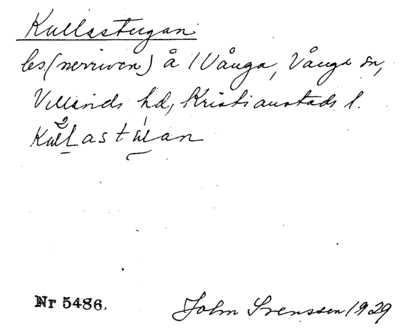 Kullastugan
les (nerriven) å 1 Vånga, Vånga sn,
Villands hd, Kristianstads l.
Nr 5486. John Svensson 1929